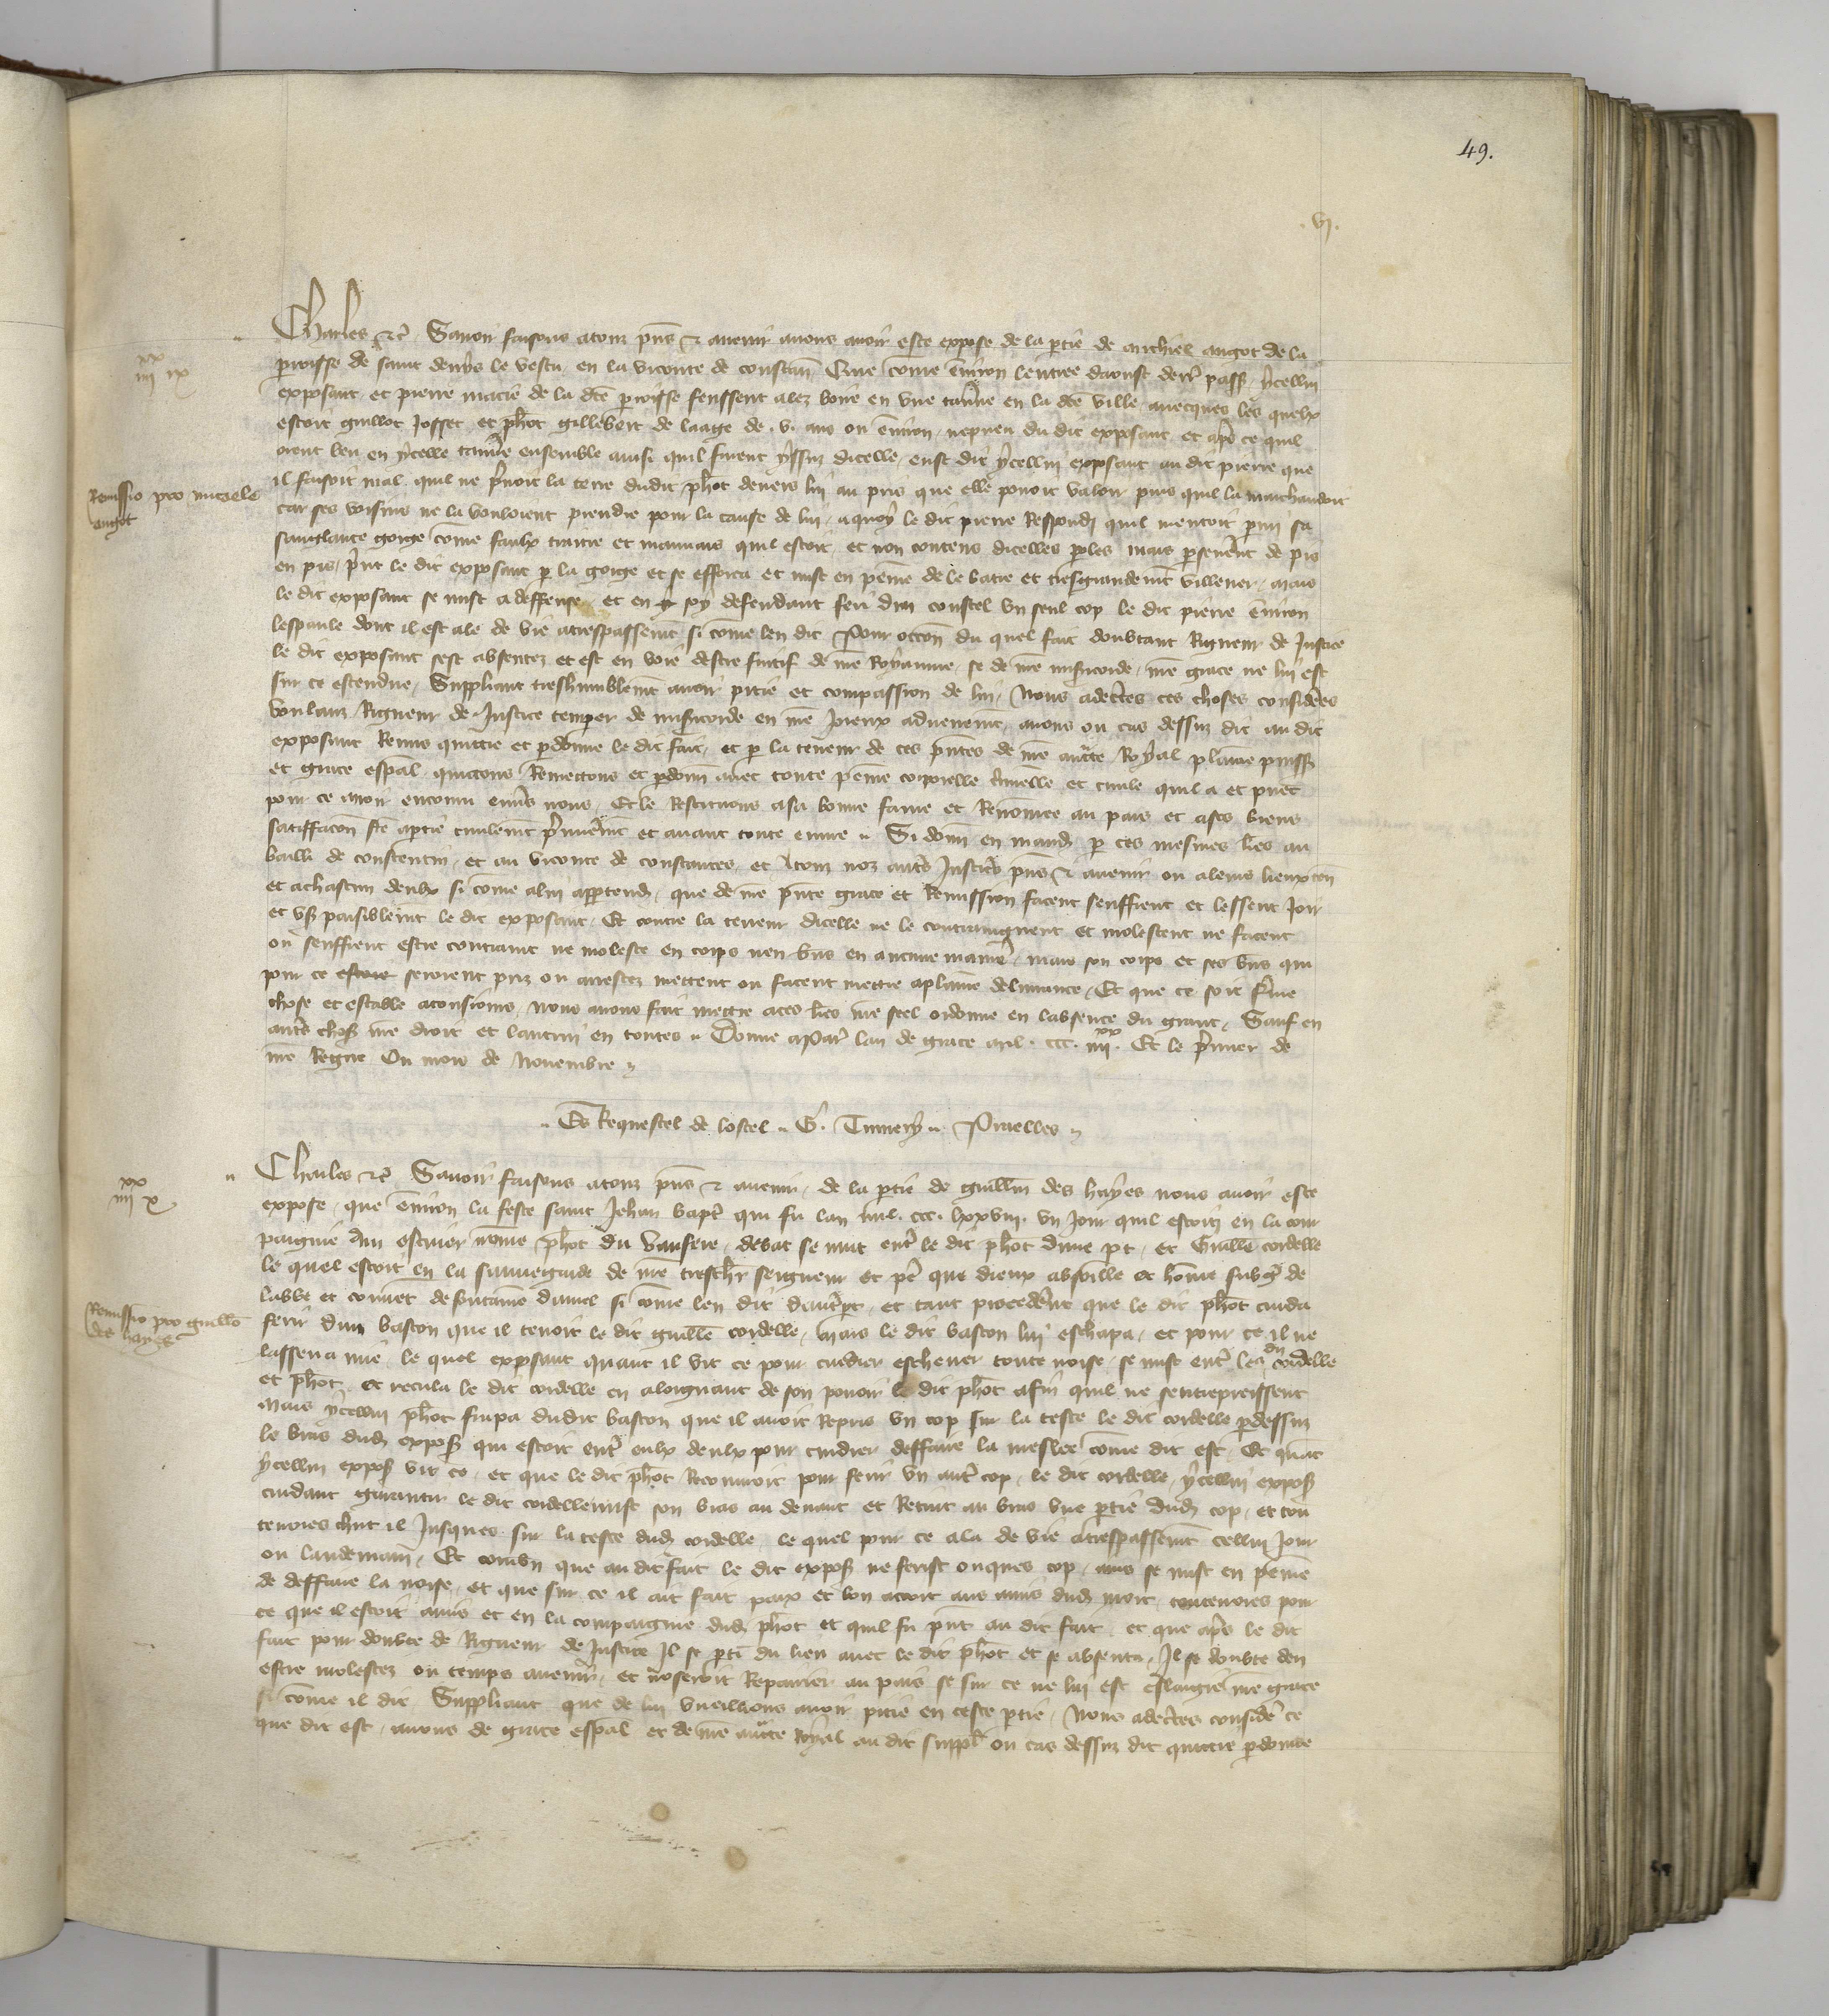 49.
.vj.
Charles etc̃ Sauoir faisons atouz pñs & auenir auons auoir este expose de la ꝑtie de michiel angot de la
ꝑroisse de saint denys le vestu en la viconte de constan̄ Que com̄e en̄iron lentree daoust derr̄ pass̄ ycellui
iiij xx ix
exposant et pierre macie de la dc̄e ꝑroisse feussent alez boire en vne tau̾ne en la dc̄e ville auecques les quelx
estoit guillot Josset et ph̄ot gillebert de laage de .v. ans ou en̄iron nepueu du dit exposant et ap̃s ce quil
orent beu en ycelle tau̾ne ensemble ainsi quil furent yssuz dicelle eust dit ycellui exposant au dit pierre que
il faisoit mal quil ne p̃noit la terre dudit ph̄ot deuers lui au pris que elle pouoit valoir puis quil la marchandoit
Remissio pro micaele
angot
car ses voisins ne la vouloient prendre pour la cause de lui aquoy le dit pierre Respondi quil mentoit parmi sa
sanglante gorge com̄e faulx traitre et mauuais quil estoit et non contens dicelles ꝑoles mais ꝑseuerāt de pis
en pis p̃nt le dit exposant ꝑ la gorge et se efforca et mist en peine de le batre et tresgrandemēt villener mais
le dit exposant se mist a deffense et en soy defendant feri dun coustel vn seul cop le dit pierre en̄iron
lespaule dont il est ale de vie atrespassemēt si com̄e len dit Pour occōn du quel fait doubtant Rigueur de Justice
le dit exposant sest absentez et est en voie destre fuitif de nr̄e Royaume se de nr̄e misicorde nr̄e grace ne lui est
sur ce estendue Suppliant treshumblemēt auoir pitie et compassion de lui Nous adecertes ces choses considerees
voulanz Rigueur de Justice temper de misicorde en nr̄e Joyeux aduenemēt auons ou cas dessuz dit au dit
exposant Remis quittie et ꝑdonne le dit fait et ꝑ la teneur de ces p̃ntes de nr̄e auc̄te Royal plaine puiss̄
et grace esp̄al quittons Remettons et ꝑdonn̄ auec toute peine corporelle c̃minelle et ciuile quil a et puet
pour ce auoir encouru enu̾s nous Et le Restituons asa bonne fame et Renōmee au pais et ases biens
satiffacōn fc̄e aptie ciuilemēt p̃mieremēt et auant toute euure Si donn̄ en mand̄ ꝑ ces mesmes l̄r̄es au
bailli de constentin et au viconte de constances et Atouz noz autr̄s Justic̃s pñs & auenir ou aleurs lieuxten̄
et achascun deulx si com̄e alui apꝑtend̄ que de nr̄e p̃nte grace et Remission facent seuffrent et lessent Joir
et vs̄ paisiblemēt le dit exposant Et contre la teneur dicelle ne le contraingnent et molestent ne facent
ou seuffrent estre contraint ne moleste en corps nen biēs en aucune maniere mais son corps et ses biēs qui
pour ce estoie seroient priz ou arrestez mettent ou facent mettre aplaine deliurance Et que ce soit ferme
chose et estable atousiours Nous auons fait mettre aces l̄r̄es nr̄e seel ordonne en labsence du grant Sauf en
autr̄s chos̄ nr̄e droit et lautrui en toutes Donne aPar̄ lan de grace mil . ccc. iiij xx . Et le p̃mier de
nr̄e Regne Ou mois de Nouembre
Es Requestes de lostel G. Tumery Pruelles
Charles etc̃ Sauoir faisons atouz pñs & auenir de la ꝑtie de guill̄m des hayes nous auoir este
iiij xx x
expose que en̄iron la feste saint Jehan bapt̃ qui fu lan mil. ccc. lxxviij. vn Jour quil estoit en la com
paignie dun escuier nōme ph̄ot du Vausere debat se mut entr̄ le dit ph̄ot dune ꝑt et Guill̄e cordelle
le quel estoit en la sauuegarde de nr̄e treschr̄ seigneur et pere que dieux absoille et hom̄e subget de
labbe et conuēt de fontaine daniel si com̄e len dit dautreꝑt et tant procederēt que le dit ph̄ot cuida
Remissio pro guill̄o
des hayes
ferir dun baston que il tenoit le dit guill̄e cordelle mais le dit baston lui eschapa et pour ce il ne
lassena mie le quel exposant quant il vit ce pour cuidier escheuer toute noise se mist entr̄ les diz cordelle
et ph̄ot et recula le dit cordelle en aloignant de son pouoir le dit ph̄ot afin quil ne sentrepreissent
Mais ycellui ph̄ot frapa dudit baston que il auoit Repris vn cop sur la teste le dit cordelle ꝑdessuz
le bras dud̄ expos̄ qui estoit entr̄ eulx deulx pour cuidier deffaire la meslee com̄e dit est Et quāt
ycellui expos̄ vit ce et que le dit ph̄ot Recouuroit pour ferir vn autr̄ cop le dit cordelle ycellui expos̄
cuidant garantir le dit cordelle mist son bras au deuant et Retint au bras vne ꝑtie dud̄ cop et tou
teuoies chut il Jusques sur la teste dud̄ cordelle le quel pour ce ala de vie atrespassemēt cellui Jour
ou landemain Et combn̄ que au dit fait le dit expos̄ ne ferist onques cop mais se mist en peine
de deffaire la noise et que sur ce il ait fait paix et bon acort aus amis dud̄ mort toutesuoies pour
ce que il estoit amis et en la compaignie dud̄ ph̄ot et quil fu p̃nt au dit fait et que ap̃s le dit
fait pour doubte de Rigueur de Justice Il se ꝑti du lieu auec le dit ph̄ot et se absenta Il se doubte den
estre molestez ou temps auenir et noseroit Repairier au pais se sur ce ne lui est eslargie nr̄e grace
si com̄e il dit Suppliant que de lui vueillions auoir pitie en ceste ꝑtie Nous adecertes consideré ce
que dit est auons de grace esp̄al et de nr̄e auc̄te Royal au dit suppl̄ ou cas dessuz dit quittie ꝑdonne